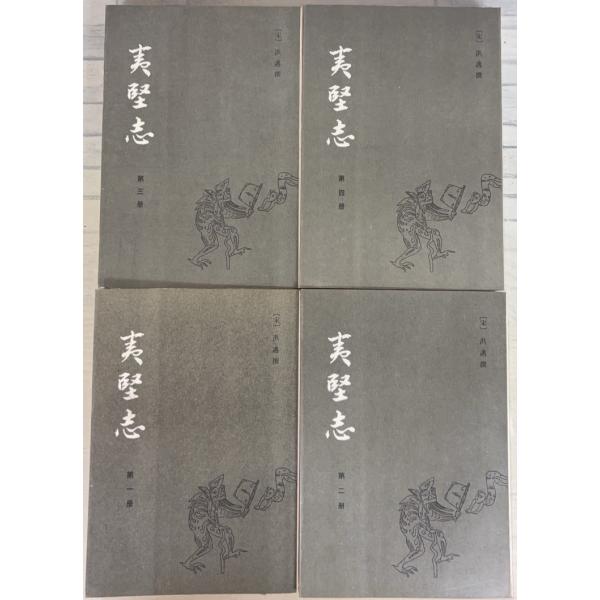 [宋] 洪邁 撰
夷堅志
第三册
[宋] 洪邁 撰
夷堅志
第四册
[宋] 洪邁 撰
夷堅志
第一册
[宋] 洪邁 撰
夷堅志
第二册